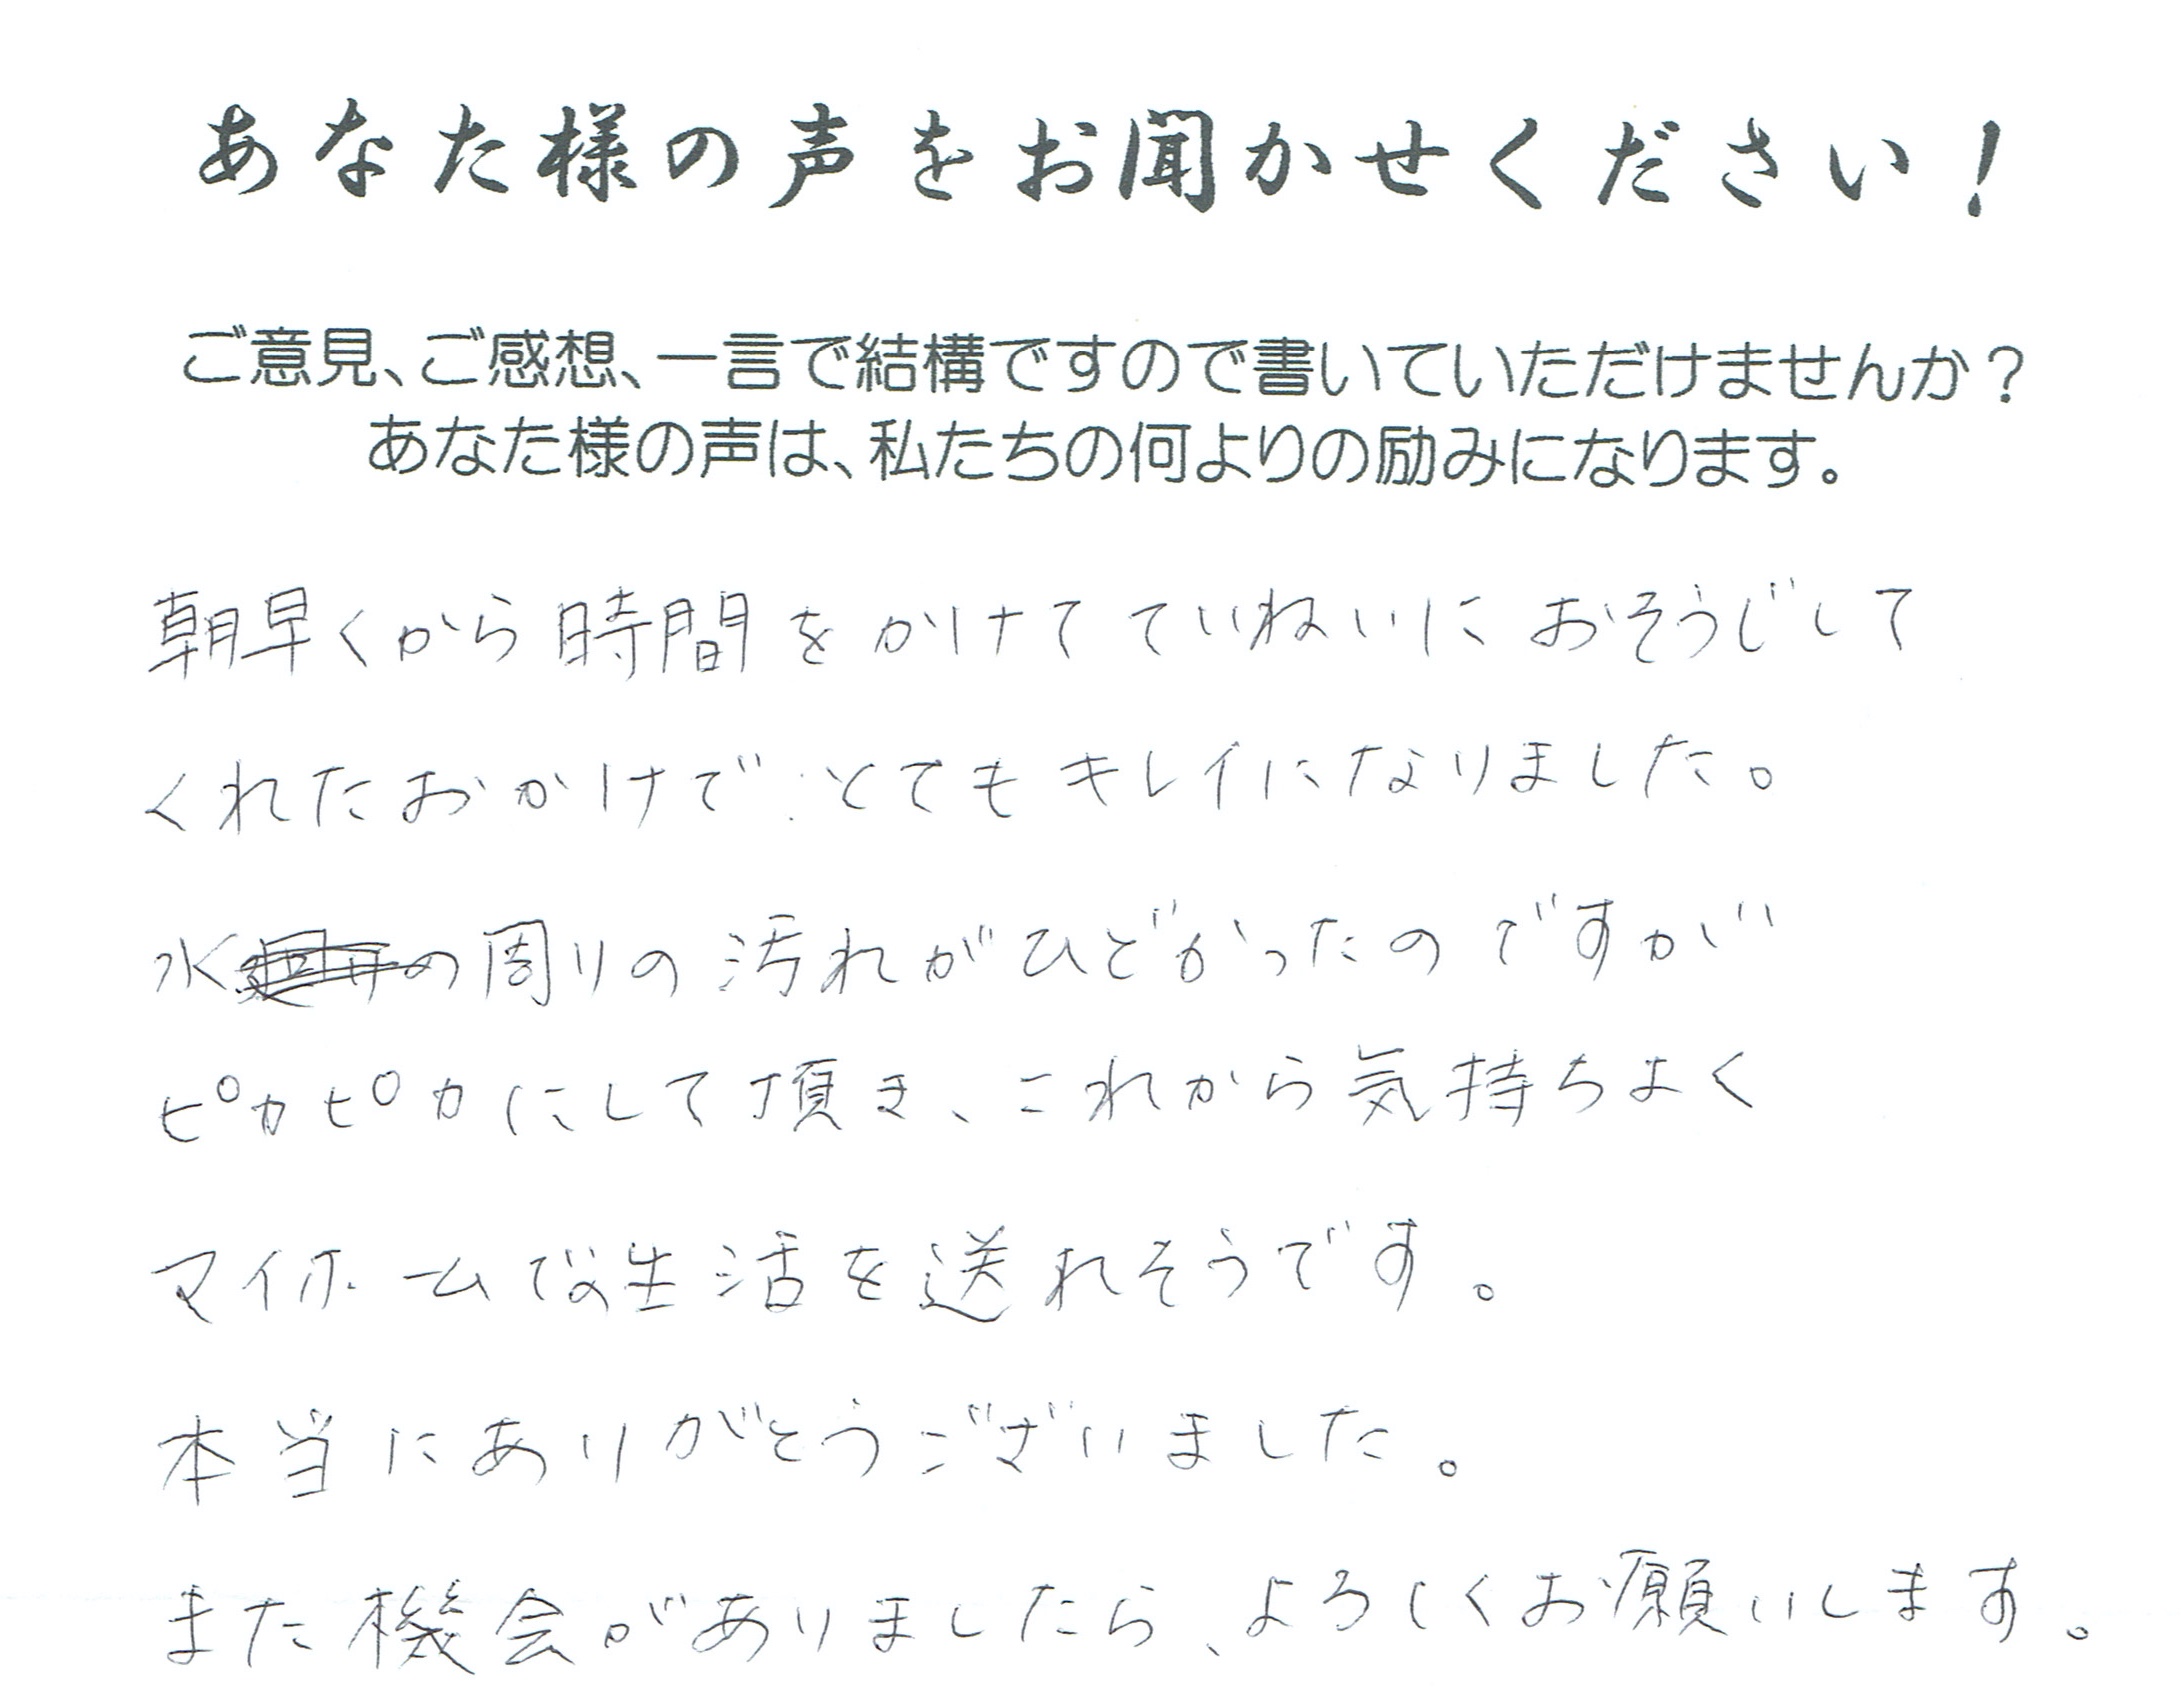 あなた様の声をお聞かせください！
ご意見、ご感想、一言で結構ですので書いていただけませんか？
あなた様の声は、私たちの何よりの励みになります。
朝早くから時間をかけてていねいにおそうじして
くれたおかけでとてもキレイになりました。
水の周りの汚れがひどかったのですが
ピカピカにして頂き、これから気持ちよく
マイホームで生活を送れそうです。
本当にありがとうございました。
また機会がありましたら、よろしくお願いします。